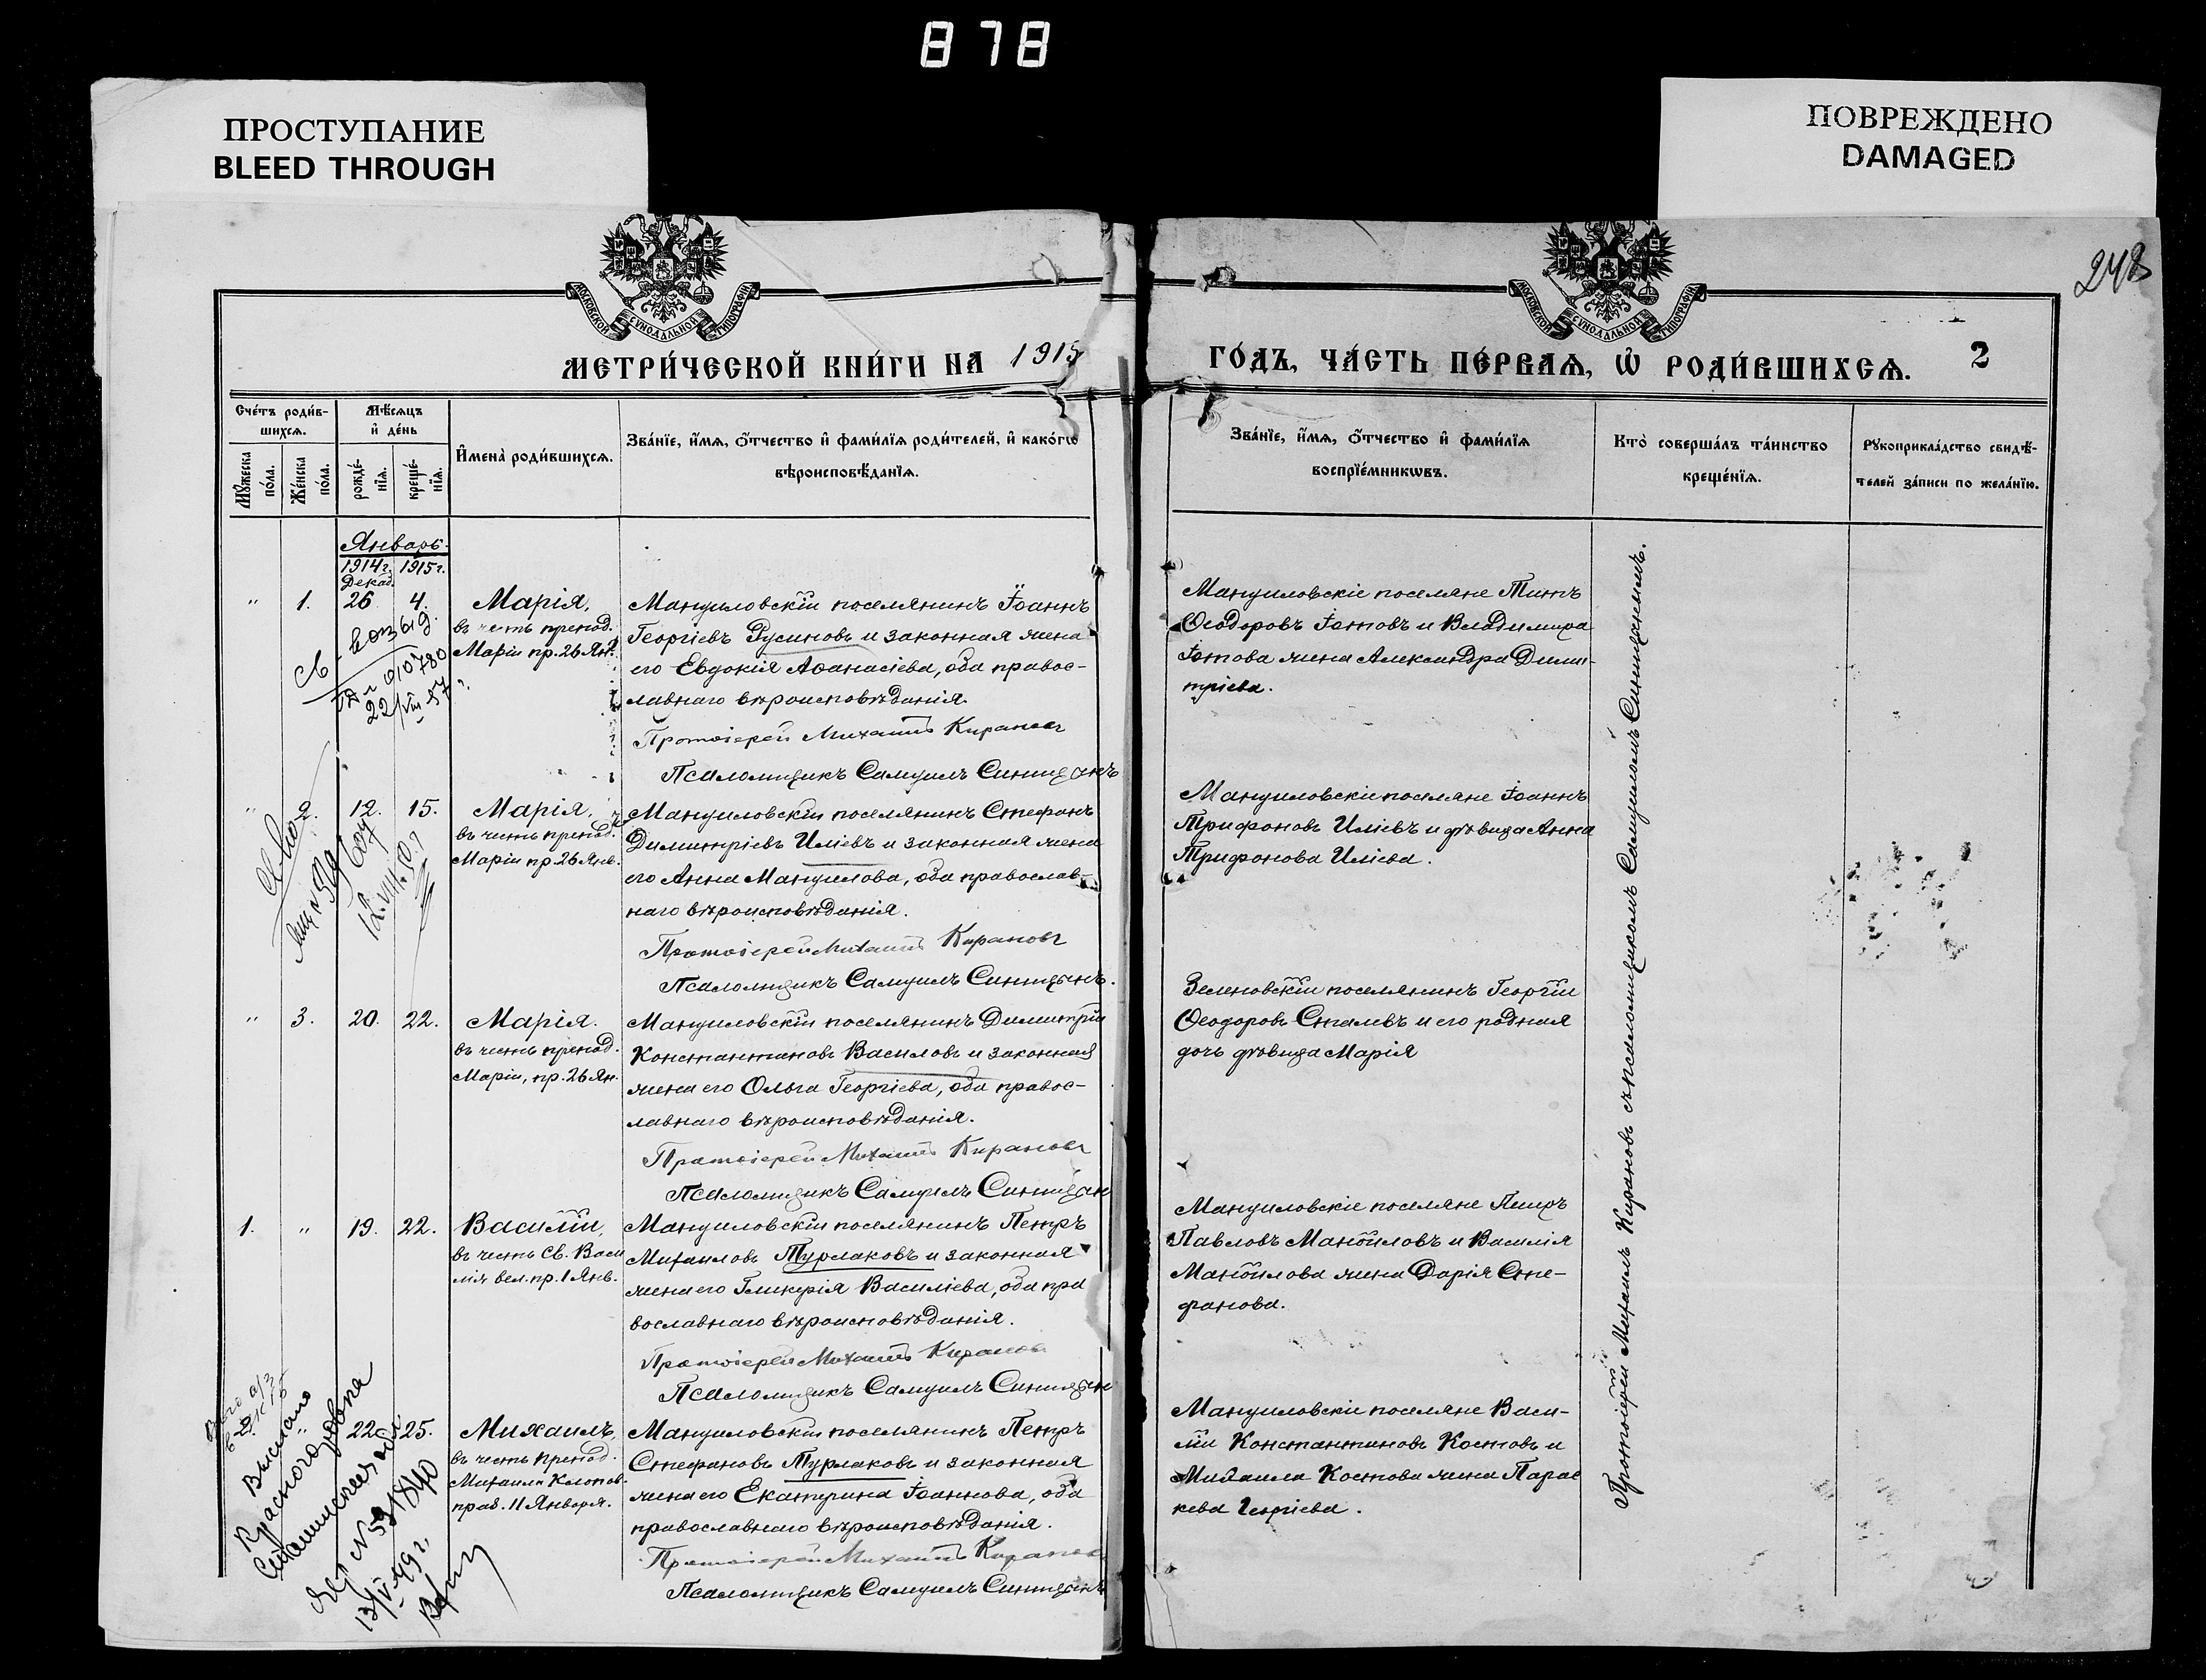 878
ПРОСТУПАНИЕ
BLEED THROUGH
ПОВРЕЖДЕНО
DAMAGED
МОСКОВСКОЙ СѴНОДАЛЬНОЙ ТИПОГРАФІИ
МОСКОВСКОЙ СѴНОДАЛЬНОЙ ТИПОГРАФІИ
248
МЕТРИ́ЧЕСКОЙ КНИ́ГИ НА 1915
ГО́ДЪ, ЧА́СТЬ ПЕ́РВАѦ, Ѡ҆ РОДИ́ВШИХСѦ. 2
Сче́тъ роди́в-
шихсѧ.
Мѣ́сѧцъ
и҆ де́нь
Мꙋ́жеска
по́ла.
Же́нска
по́ла.
рожде́-
нїѧ.
креще́-
нїѧ.
И҆мена̀ роди́вшихсѧ.
Зва́нїе, и҆́мѧ, ѻ҆́тчество и҆ фами́лїѧ роди́телей, и҆ како́гѡ
вѣроисповѣ́данїѧ.
Зва́нїе, и҆́мѧ, ѻ҆́тчество и҆ фами́лїѧ
воспрїе́мникѡвъ.
Кто̀ соверша́лъ та́инство
креще́нїѧ.
Рꙋкоприкла́дство свидѣ́-
телей за́писи по жела́нїю.
Январь.
1914 г. 1915 г.
Декаб.
" 1. 26 4.
Марія,
въ честь препод.
Маріи пр. 26 Ян.
Мануиловскій поселянинъ Іоаннъ
Георгіевъ Русиновъ и законная жена
его Евдокія Аѳанасіева, оба правос-
лавнаго вѣроисповѣданія.
Протоіерей Михаилъ Кирановъ
Псаломщикъ Самуилъ Синицанъ
Мануиловскіе поселяне Титъ
Ѳеодоровъ Іотовъ и Владимира
Іотова жена Александра Дими-
тріева.
22/VIII 57 г.
" 2. 12. 15.
Марія,
въ честь препод.
Маріи пр. 26 Янв.
Мануиловскій поселянинъ Стефанъ
Димитріевъ Иліевъ и законная жена
его Анна Мануилова, оба православ-
наго вѣроисповѣданія.
Протоіерей Михаилъ Кирановъ
Псаломщикъ Самуилъ Синицанъ.
Мануиловскіе поселяне Іоаннъ
Трифоновъ Иліевъ и дѣвица Анна
Трифонова Иліева.
12.VIII.50 г
" 3. 20. 22.
Марія.
въ честь препод.
Маріи, пр. 26 Ян.
Мануиловскій поселянинъ Димитрій
Константиновъ Василовъ и законная
жена его Ольга Георгіева, оба правос-
лавнаго вѣроисповѣданія.
Протоіерей Михаилъ Кирановъ
Псаломщикъ Самуилъ Синицан
Зеленовскій поселянинъ Георгій
Ѳеодоровъ Сталевъ и его родная
дочь дѣвица Марія
1. " 19. 22.
Василій,
въ честь Св. Васи
лія вел. пр. 1 Янв.
Мануиловскій поселянинъ Петръ
Михаиловъ Турлаковъ и законная
жена его Гликерія Василіева, оба пра
вославнаго вѣроисповѣданія.
Протоіерей Михаилъ Киранов
Псаломщикъ Самуилъ Синицан
Мануиловскіе поселяне
Павловъ Манойловъ и Василія
Манойлова жена Дарія Сте-
фанова.
2. " 22. 25.
Михаилъ,
въ честь препод.
Михаила Клопов.
празд. 11 Января.
Мануиловскій поселянинъ Петръ
Стефановъ Турлаковъ и законная
жена его Екатерина Іоаннова, оба
православнаго вѣроисповѣданія.
Протоіерей Михаилъ Киранов
Псаломщикъ Самуилъ Синицанъ
Мануиловскіе поселяне Васи-
лій Константиновъ Костовъ и
Михаила Костова жена Парас
кева Георгіева.
Выслано
13/V 49 г.
Протоіерей Михаилъ Кирановъ съ псаломщикомъ Самуиломъ Синицаномъ.